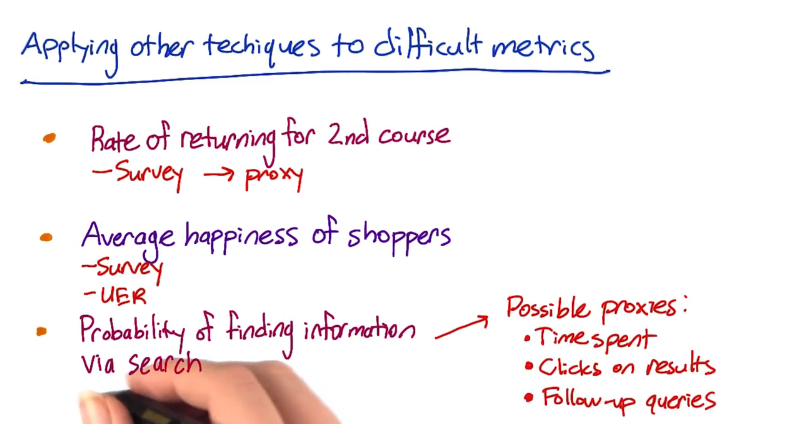 Applying other techiques to difficult metrics
• Rate of returning for 2nd course
- Survey → proxy
• Average happiness of shoppers
- Survey
- UER
• Probability of finding information
via search
Possible proxies:
• Time spent
• Clicks on results
• Follow-up queries